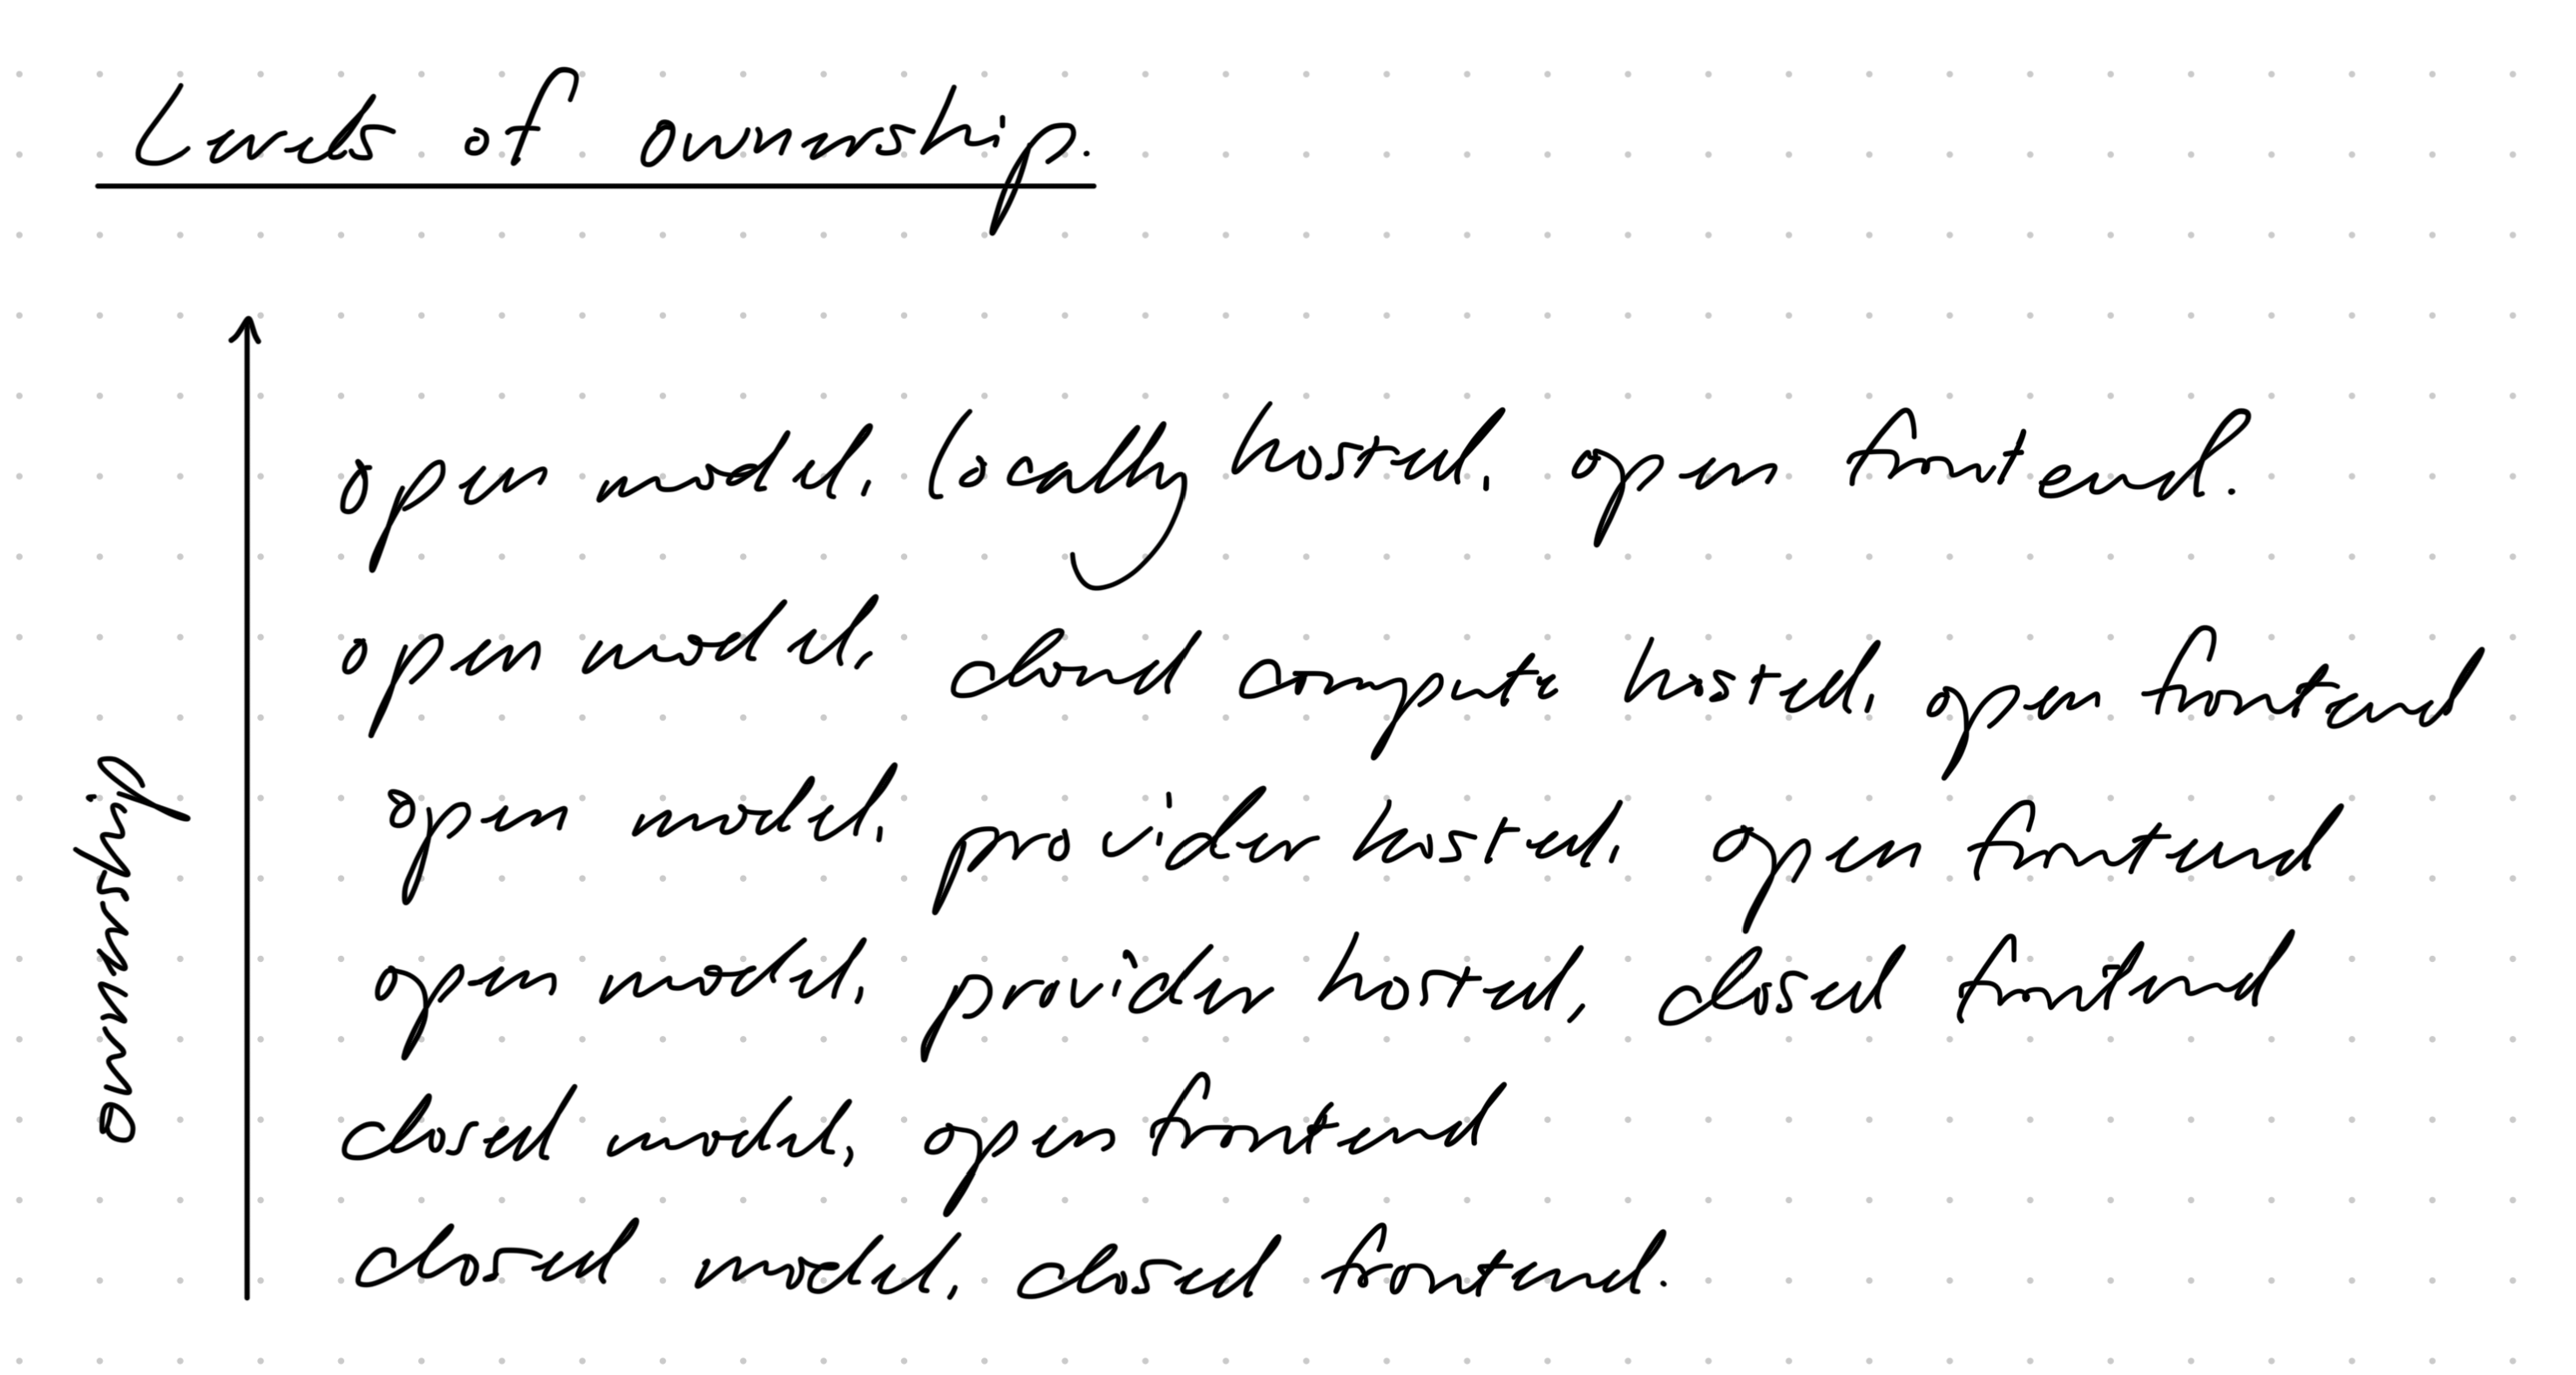 Levels of ownership.
open model, locally hosted, open frontend.
open model, cloud compute hosted, open frontend
open model, provider hosted, open frontend
open model, provider hosted, closed frontend
closed model, open frontend
closed model, closed frontend.
ownership